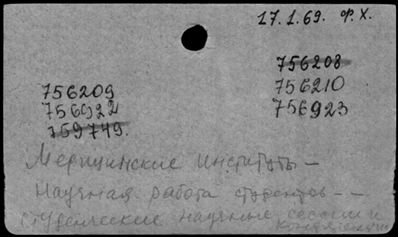 17.1.69. ф.Х.
756208
756209
756210
756922
756923
759749.
Медицинские институты —
Научная работа студентов --
Студенческие научные сессии и
конференции